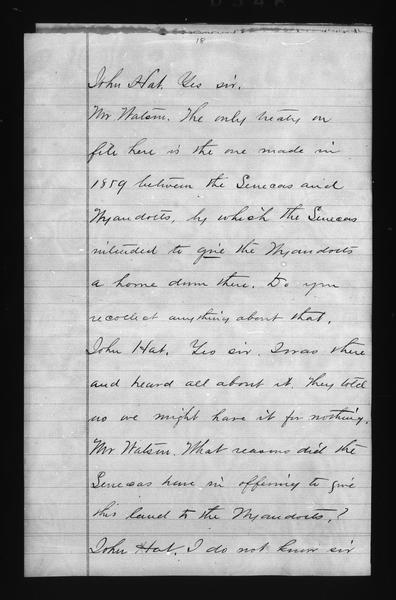 18
John Hat. Yes sir.
Mr Watson. The only treaty on
file here is the one made in
1859 between the Senecas and
Wyandotts, by which the Senecas
intended to give the Wyandotts
a home down there. Do you
recollect anything about that.
John Hat. Yes sir. I was there
and heard all about it. They told
us we might have it for nothing.
Mr Watson. What reasons did the
Senecas have in offering to give
this land to the Wyandotts?
John Hat. I do not know sir